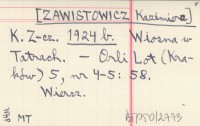 [ZAWISTOWICZ Kazimiera]
K. Z-cz. 1924 b. Wiosna w
Tatrach. — Orli Lot (Kra-
ków) 5, nr 4-5: 58.
Wiersz.
MT